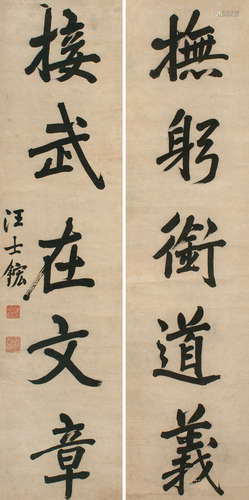 撫躬銜道義
接武在文章
汪士鋐